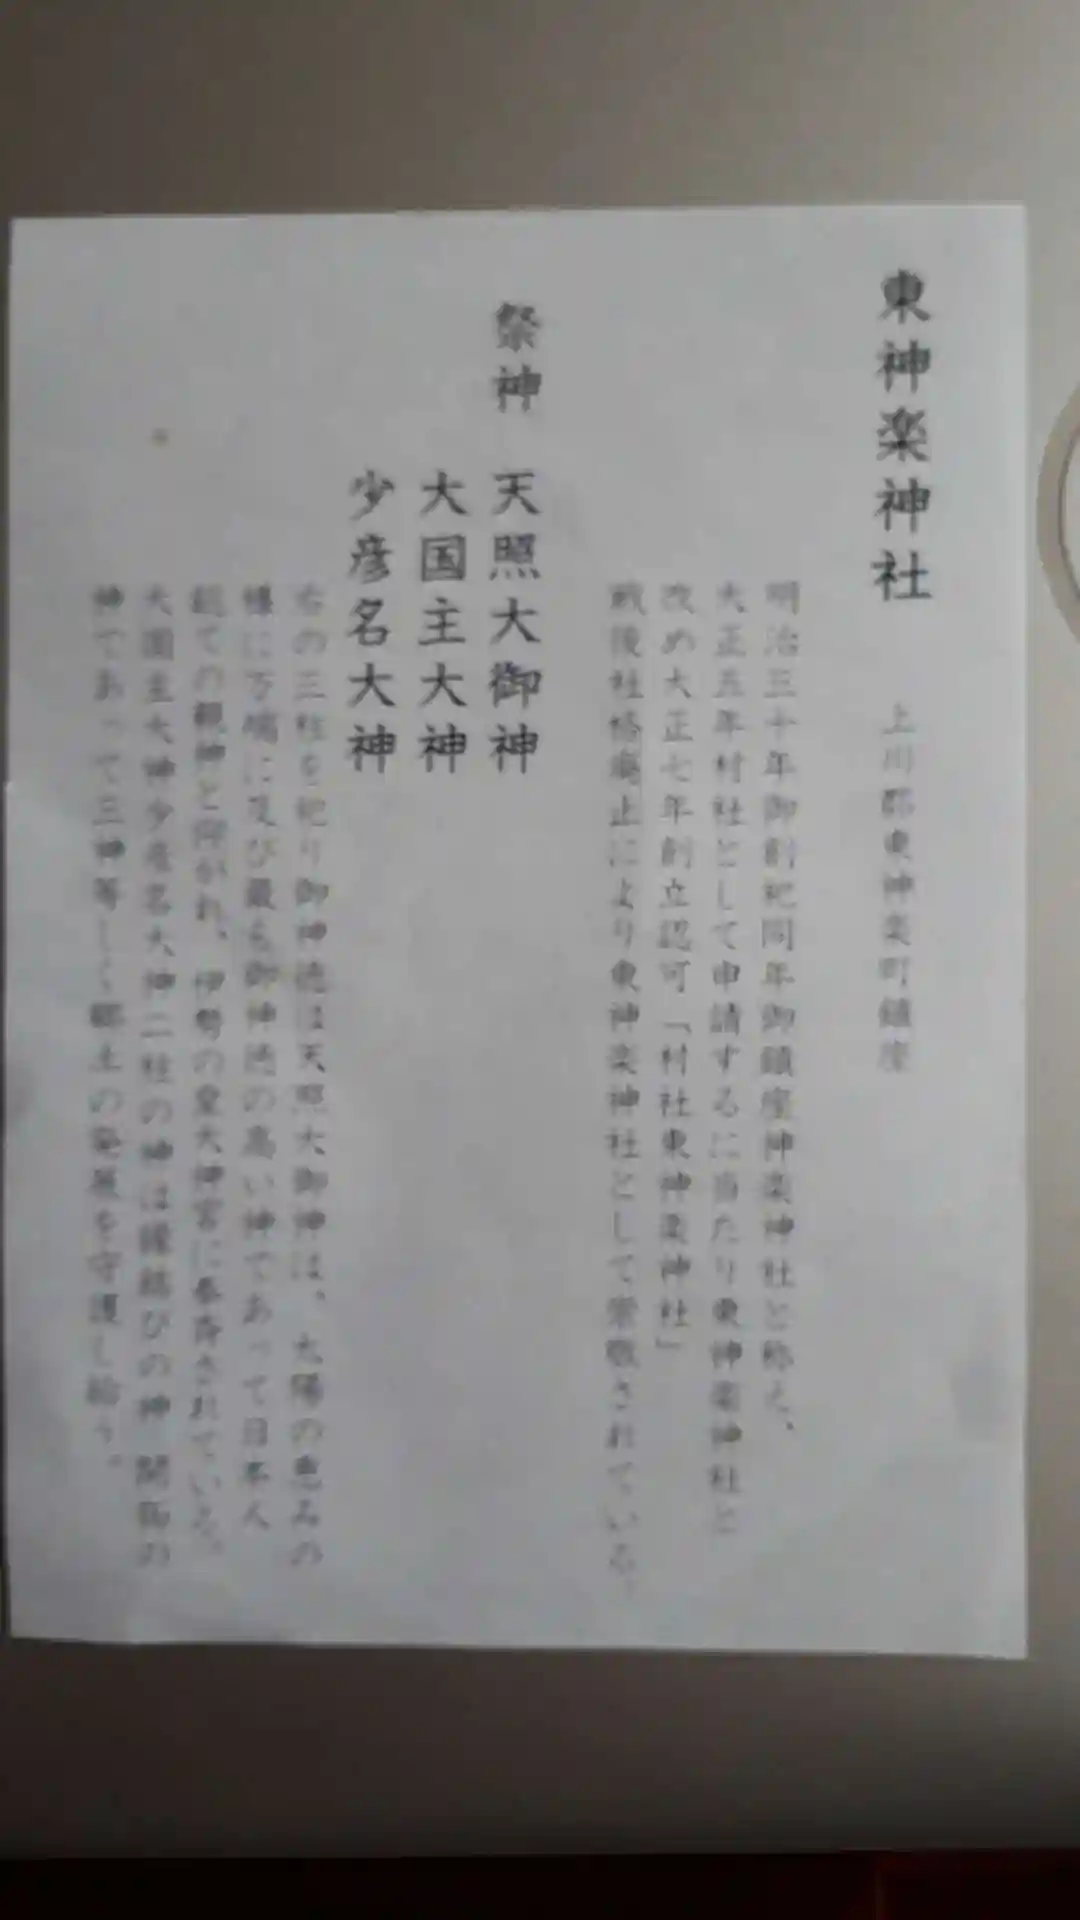 東神楽神社
上川郡東神楽町鎮座
明治三十年御創祀同年御鎮座神楽神社と称え、
大正五年村社として申請するに当たり東神楽神社と
改め大正七年創立認可「村社東神楽神社」
戦後社格廃止により東神楽神社として崇敬されている。
祭神 天照大御神
大国主大神
少彦名大神
右の三柱を祀り御神徳は天照大御神は、太陽の恵みの
様に万端に及び最も御神徳の高い神であって日本人
総ての親神と仰がれ、伊勢の皇大神宮に奉斎されている。
大国主大神少彦名大神二柱の神は縁結びの神 開拓の
神であって三神等しく郷土の発展を守護し給う。